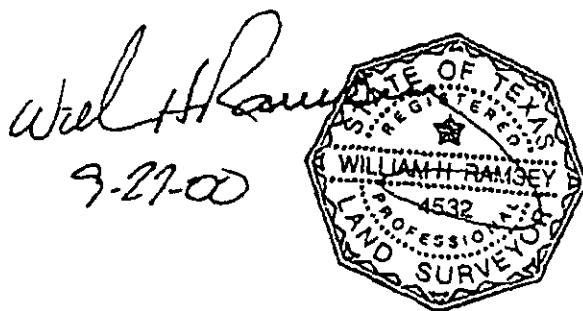 Will H Ramsey
9-27-00
STATE OF TEXAS
REGISTERED
WILLIAM H RAMSEY
4532
PROFESSIONAL
LAND SURVEYOR